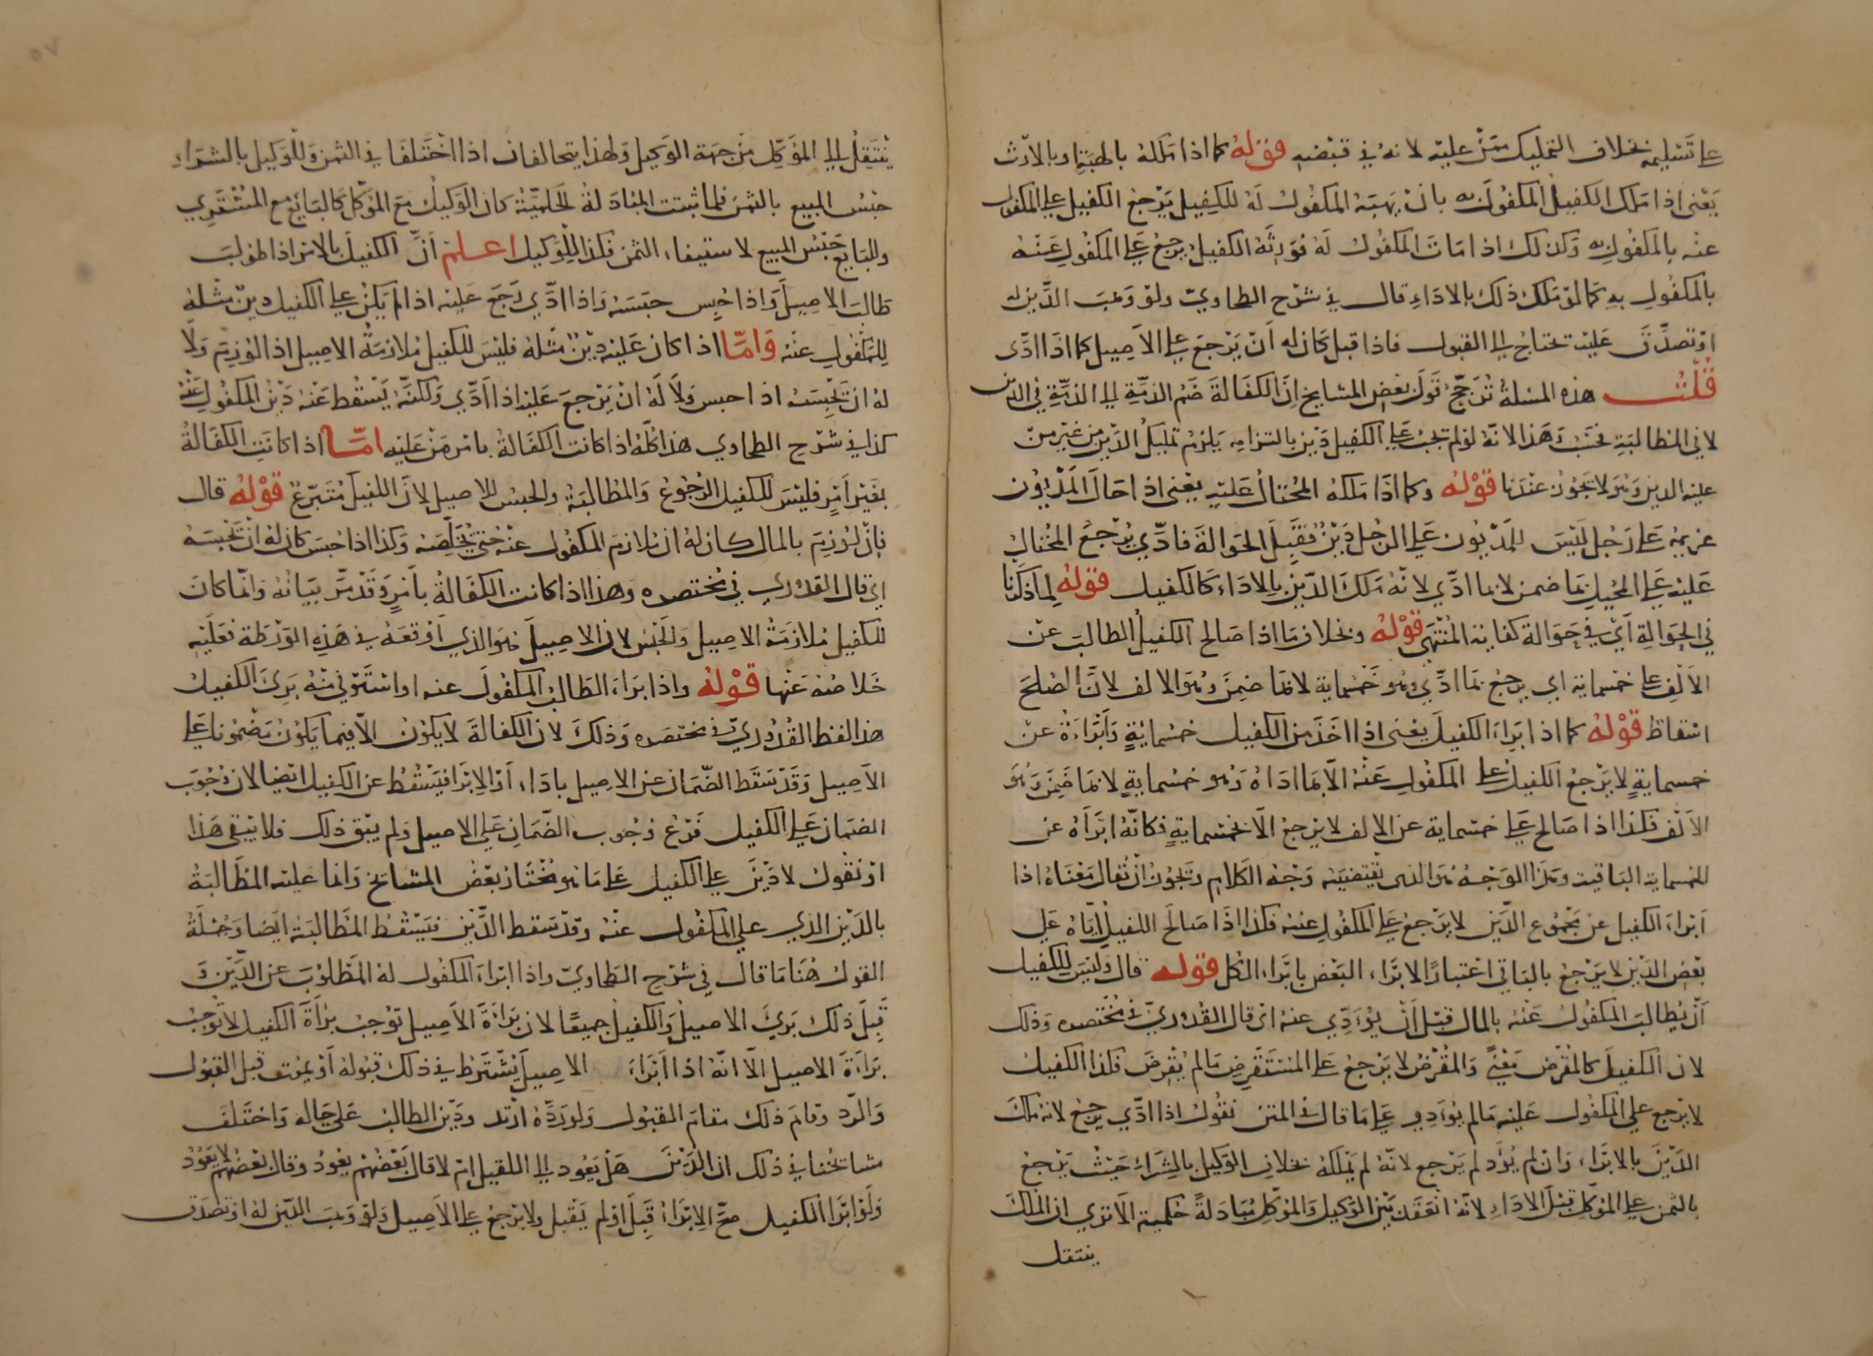 علي تسليمه بخلاف التمليك ممن عليه لانه في قبضه قوله كما اذا ملكه بالهبة او بالارث
يعني اذا ملك الكفيل المكفول به بان يهبه المكفول له للكفيل يرجع الكفيل علي المكفول
عنه بالمكفول به وكذلك اذا مات المكفول له فورثه الكفيل يرجع علي المكفول عنه
بالمكفول به كما لو ملك ذلك بالاداء قال في شرح الطحاوي ولو وهب الدين له
او تصدق عليه تحتاج الي القبول فاذا قبل كان له ان يرجع علي الاصيل كما اذا ادى
قلت هذه المسئلة ترجح قول بعض المشايخ ان الكفالة ضم الذمة الي الذمة في الدين
لا في المطالبة فحسب وهذا لانه لو لم تجب علي الكفيل دين بالتزامه يلزم تمليك الدين من غير من
عليه الدين وهو لا يجوز عندنا قوله وكما اذا ملكه المحتال عليه يعني اذا احال المديون
غريمه علي رجل ليس للمديون علي الرجل دين فقبل الحوالة فادي يرجع المحتال
عليه علي المحيل بما ضمن لا بما ادي لانه ملك الدين بالاداء كالكفيل قوله لما ذكرنا
في الحوالة اي في حوالة كفاية المنتهي قوله وبخلاف ما اذا صالح الكفيل الطالب عن
الالف علي خمسماية اي يرجع بما ادي وهو خمسماية لا بما ضمن وهو الالف لان الصلح
اسقاط قوله كما اذا ابراء الكفيل يعني اذا اخذ من الكفيل خمسماية وابراءه عن
خمسماية لا يرجع الكفيل علي المكفول عنه الا بما اداه وهو خمسماية لا بما ضمن وهو
الالف فكذا اذا صالح علي خمسماية عن الالف لا يرجع الا بخمسماية فكانه ابرأه عن
الخمسماية الباقية وهذا الوجه هو الذي يقتضيه وجه الكلام ويجوز ان يقال معناه اذا
ابراء الكفيل عن مجموع الدين لا يرجع علي المكفول عنه فكذا اذا صالح الكفيل اياه علي
بعض الدين لا يرجع بالباقي اعتبارا لابراء البعض بابراء الكل قوله قال وليس للكفيل
ان يطالب المكفول عنه بالمال قبل ان يؤدي عنه اي قال القدوري في مختصره وذلك
لان الكفيل كالمقرض معني والمقرض لا يرجع علي المستقرض ما لم يقرض فكذا الكفيل
لا يرجع علي المكفول عليه ما لم يؤدي علي ما قال في المتن نقول اذا ادي يرجع لانه ملك
الدين بالابراء وان لم يؤد لم يرجع لانه لم يملكه بخلاف الوكيل بالشراء حيث يرجع
بالثمن علي الموكل قبل الاداء لانه انعقد بين الوكيل والموكل مبادلة حكمية الا تري ان الملك
ينتقل
ينتقل الي الموكل من جهة الوكيل ولهذا يتحالفان اذا اختلفا في الثمن وللوكيل بالشراء
حبس المبيع بالثمن فلما ثبتت المبادلة الحكمية كان الوكيل مع الموكل كالبائع مع المشتري
وللبايع حبس المبيع لاستيفاء الثمن فكذا للوكيل اعلم ان الكفيل بالامر اذا طولب
طالب الاصيل واذا حبس حبسه واذا ادي رجع عليه اذا لم يكن علي الكفيل دين مثله
للمكفول عنه واما اذا كان عليه دين مثله فليس للكفيل ملازمة الاصيل اذا لوزم ولا
له ان يحبسه اذا حبس ولا له ان يرجع عليه اذا ادي ولكنه يسقط عنه دين المكفول عنه
كذا في شرح الطحاوي هذا كله اذا كانت الكفالة بامر من عليه اما اذا كانت الكفالة
بغير امر فليس للكفيل الرجوع والمطالبة والحبس للاصيل لان الكفيل متبرع قوله قال
فان لوزم بالمال كان له ان يلازم المكفول عنه حتي يخلصه وكذا اذا حبس كان له ان يحبسه
اي قال القدوري في مختصره وهذا اذا كانت الكفالة بامره وقد مر بيانه وانما كان
للكفيل ملازمة الاصيل والحبس لان الاصيل هو الذي اوقعه في هذه الورطة فعليه
خلاصه عنها قوله واذا ابراء الطالب المكفول عنه او استوفي منه بري الكفيل
هذا لفظ القدوري في مختصره وذلك لان الكفالة لا يكون الا فيما يكون مضمونا علي
الاصيل وقد سقط الضمان عن الاصيل باداء او الابرا فيسقط عن الكفيل ايضا لان وجوب
الضمان علي الكفيل فرع وجوب الضمان علي الاصيل ولم يبق ذلك فلا يبقي هذا
او نقول لا دين علي الكفيل علي ما هو مختار بعض المشايخ وانما عليه المطالبة
بالدين الذي علي المكفول عنه وقد سقط الدين فيسقط المطالبة ايضا وجملة
القول هنا ما قال في شرح الطحاوي واذا ابراء المكفول له المطلوب عن الدين و
قبل ذلك بري الاصيل والكفيل جميعا لان براءة الاصيل توجب براءة الكفيل لا توجب
براءة الاصيل الا انه اذا ابراء الاصيل يشترط في ذلك قبوله او يموت قبل القبول
والرد وقام ذلك مقام القبول ولو رده ارتد ودين الطالب علي حاله واختلف
مشايخنا في ذلك ان الدين هل يعود الي الكفيل ام لا قال بعضهم يعود وقال بعضهم لا يعود
ولو ابرا الكفيل صح الابراء قبل او لم يقبل ولا يرجع علي الاصيل ولو وهب الدين له او تصدق